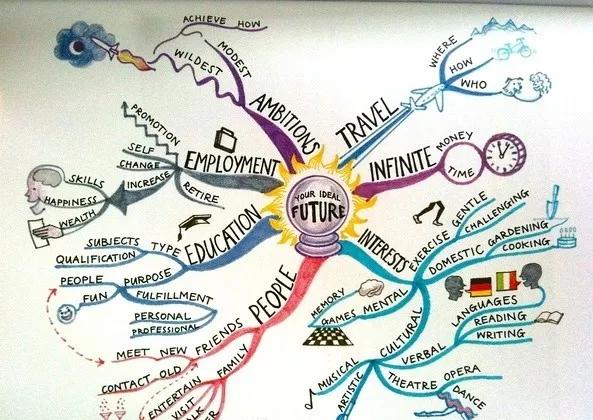 YOUR IDEAL
FUTURE
AMBITIONS
MODEST
WILDEST
ACHIEVE HOW
TRAVEL
WHERE
HOW
WHO
INFINITE
MONEY
TIME
INTERESTS
EXERCISE
GENTLE
CHALLENGING
DOMESTIC
GARDENING
COOKING
MENTAL
MEMORY
GAMES
CULTURAL
VERBAL
LANGUAGES
READING
WRITING
THEATRE
OPERA
DANCE
ARTISTIC
MUSICAL
PEOPLE
FRIENDS
NEW
MEET
OLD
CONTACT
FAMILY
ENTERTAIN
VISIT
EDUCATION
TYPE
SUBJECTS
QUALIFICATION
PURPOSE
PEOPLE
FUN
FULFILLMENT
PERSONAL
PROFESSIONAL
EMPLOYMENT
PROMOTION
SELF
CHANGE
INCREASE
SKILLS
HAPPINESS
WEALTH
RETIRE